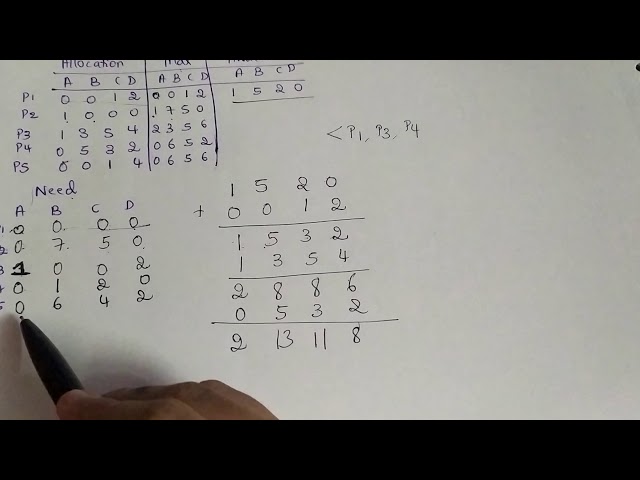 Allocation Max
A B C D A B C D A B C D
P1 0 0 1 2 0 0 1 2 1 5 2 0
P2 1 0 0 0 1 7 5 0
P3 1 3 5 4 2 3 5 6
P4 0 5 3 2 0 6 5 2
P5 0 0 1 4 0 6 5 6
< P1, P3, P4
Need
A B C D
0 0 0 0
2 0 7 5 0
3 1 0 0 2
0 1 2 0
5 0 6 4 2
1 5 2 0
+ 0 0 1 2
1 5 3 2
1 3 5 4
2 8 8 6
0 5 3 2
2 13 11 8